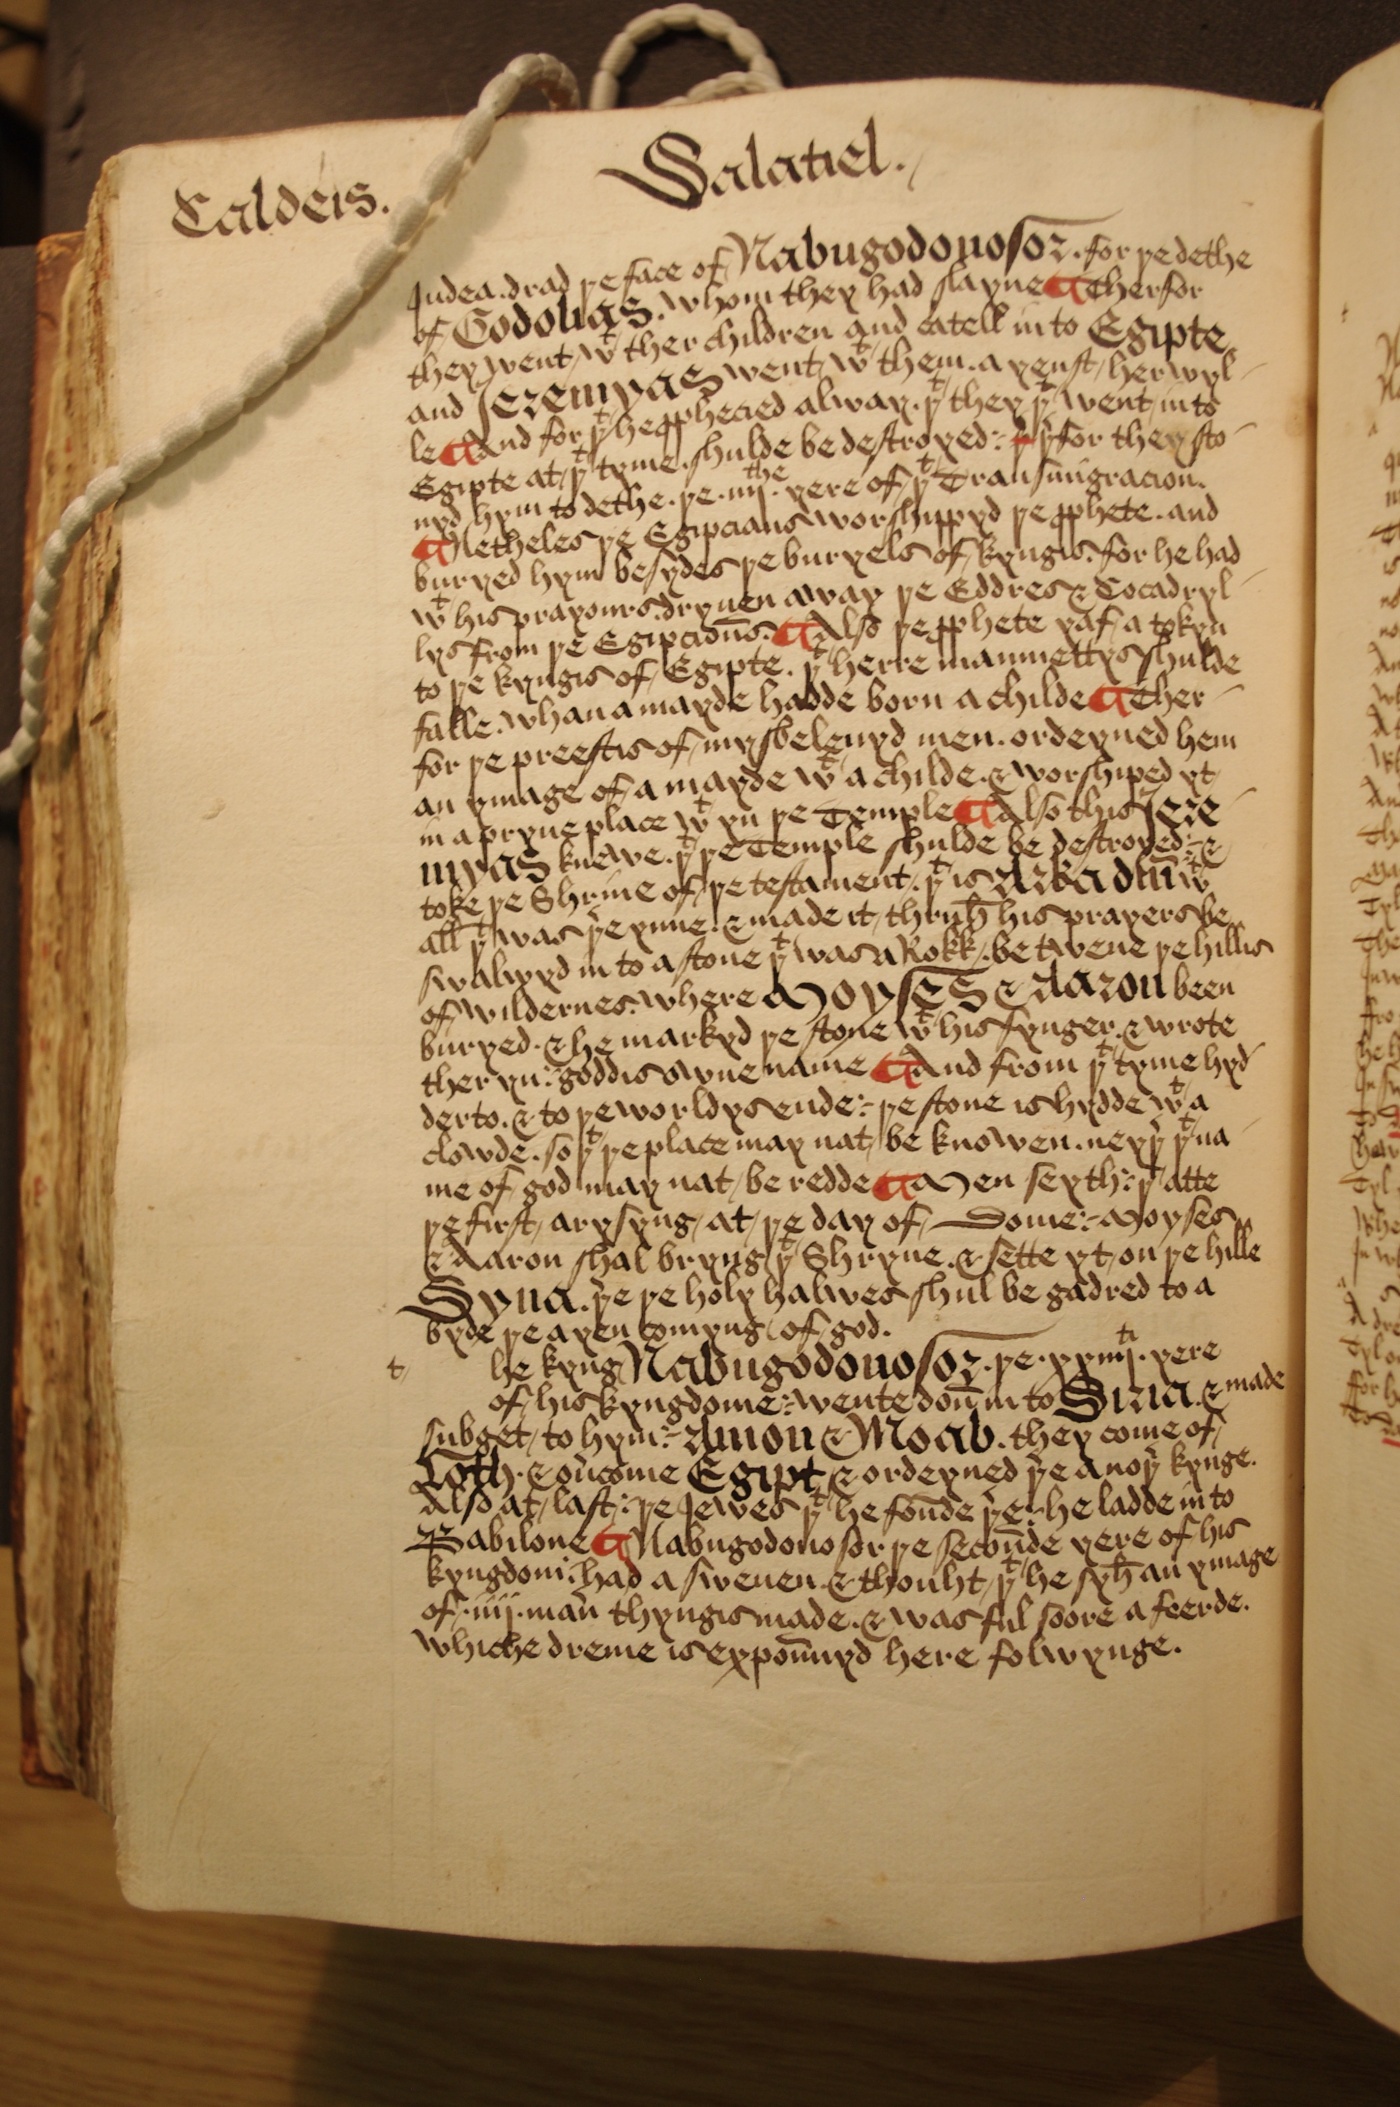 Caldeis.
Salatiel.
Judea. drad þe face of Nabugodonosor. for þe dethe
of Godolias. whom they had slayne ¶ Therfor
they went wt ther children and catell in to Egipte
and Jeremyas went wt them. ayenst her wyl-
le ¶ And for þt he ꝓphecied alway. þt they þt went in to
Egipte at þt tyme. shulde be destroyed: þfor they sto-
nyd hym to dethe. þe .iiij.the yere of þt Transmigracion.
¶ Netheles þe Egipcians worshippyd þe ꝓphete. and
buryed hym besydes þe buryels of kyngis. for he had
wt his prayours. dryuen away þe Eddres & Cocadryl-
lys from þe Egipcions. ¶ Also þe ꝓphete yaf a tokyn
to þe kyngis of Egipte. þt herre maumettys shulde
falle. whan a mayde hadde born a childe ¶ Ther-
for þe preestis of mysbeleuyd men. ordeyned hem
an ymage of a mayde wt a childe. & worshiped yt
in a pryue place wt yn þe Temple ¶ Also this Jere-
myas knewe. þt þe Temple shulde be destroyed: &
toke þe Shrine of þe testament. þt is Arka dn̄i wt
all þt was þe ynne. & made it thruh his prayers be
swalwyd in to a stone þt was a Rokk. betwene þe hillis
of wildernes. where Moyses & Aaron been
buryed. & he markyd þe stone wt his fynger. & wrote
ther yn: goddis owne name ¶ And from þt tyme hyd-
derto. & to þe worldys ende: þe stone is hydde wt a
clowde. so þt þe place may nat be knowen. neyþ þt na-
me of god may nat be redde ¶ Men seyth: þt atte
þe first arysyng at þe day of Dome: Moyses
& Aaron shal bryng þt Shryne. & sette yt on þe hille
Syna. þe þe holy halwes shul be gadred to a
byde þe ayen comyng of god.
t he kyng Nabugodonosor. þe .xxiiij.ti yere
of his kyngdome: wente doūn in to Siria. & made
subget to hym: Amon & Moab. they come of
Loth. & ou̓come Egipt & ordeyned þe anoþ kynge.
Also at last: þe Jewes þt he foūde þe: he ladde in to
Babilone ¶ Nabugodonosor þe secoūde yere of his
kyngdom: had a sweuen. & thouht þt he syh an ymage
of .iiij. man̓ thyngis made. & was ful soore a feerde.
whiche dreme is expoūnyd here folwynge.